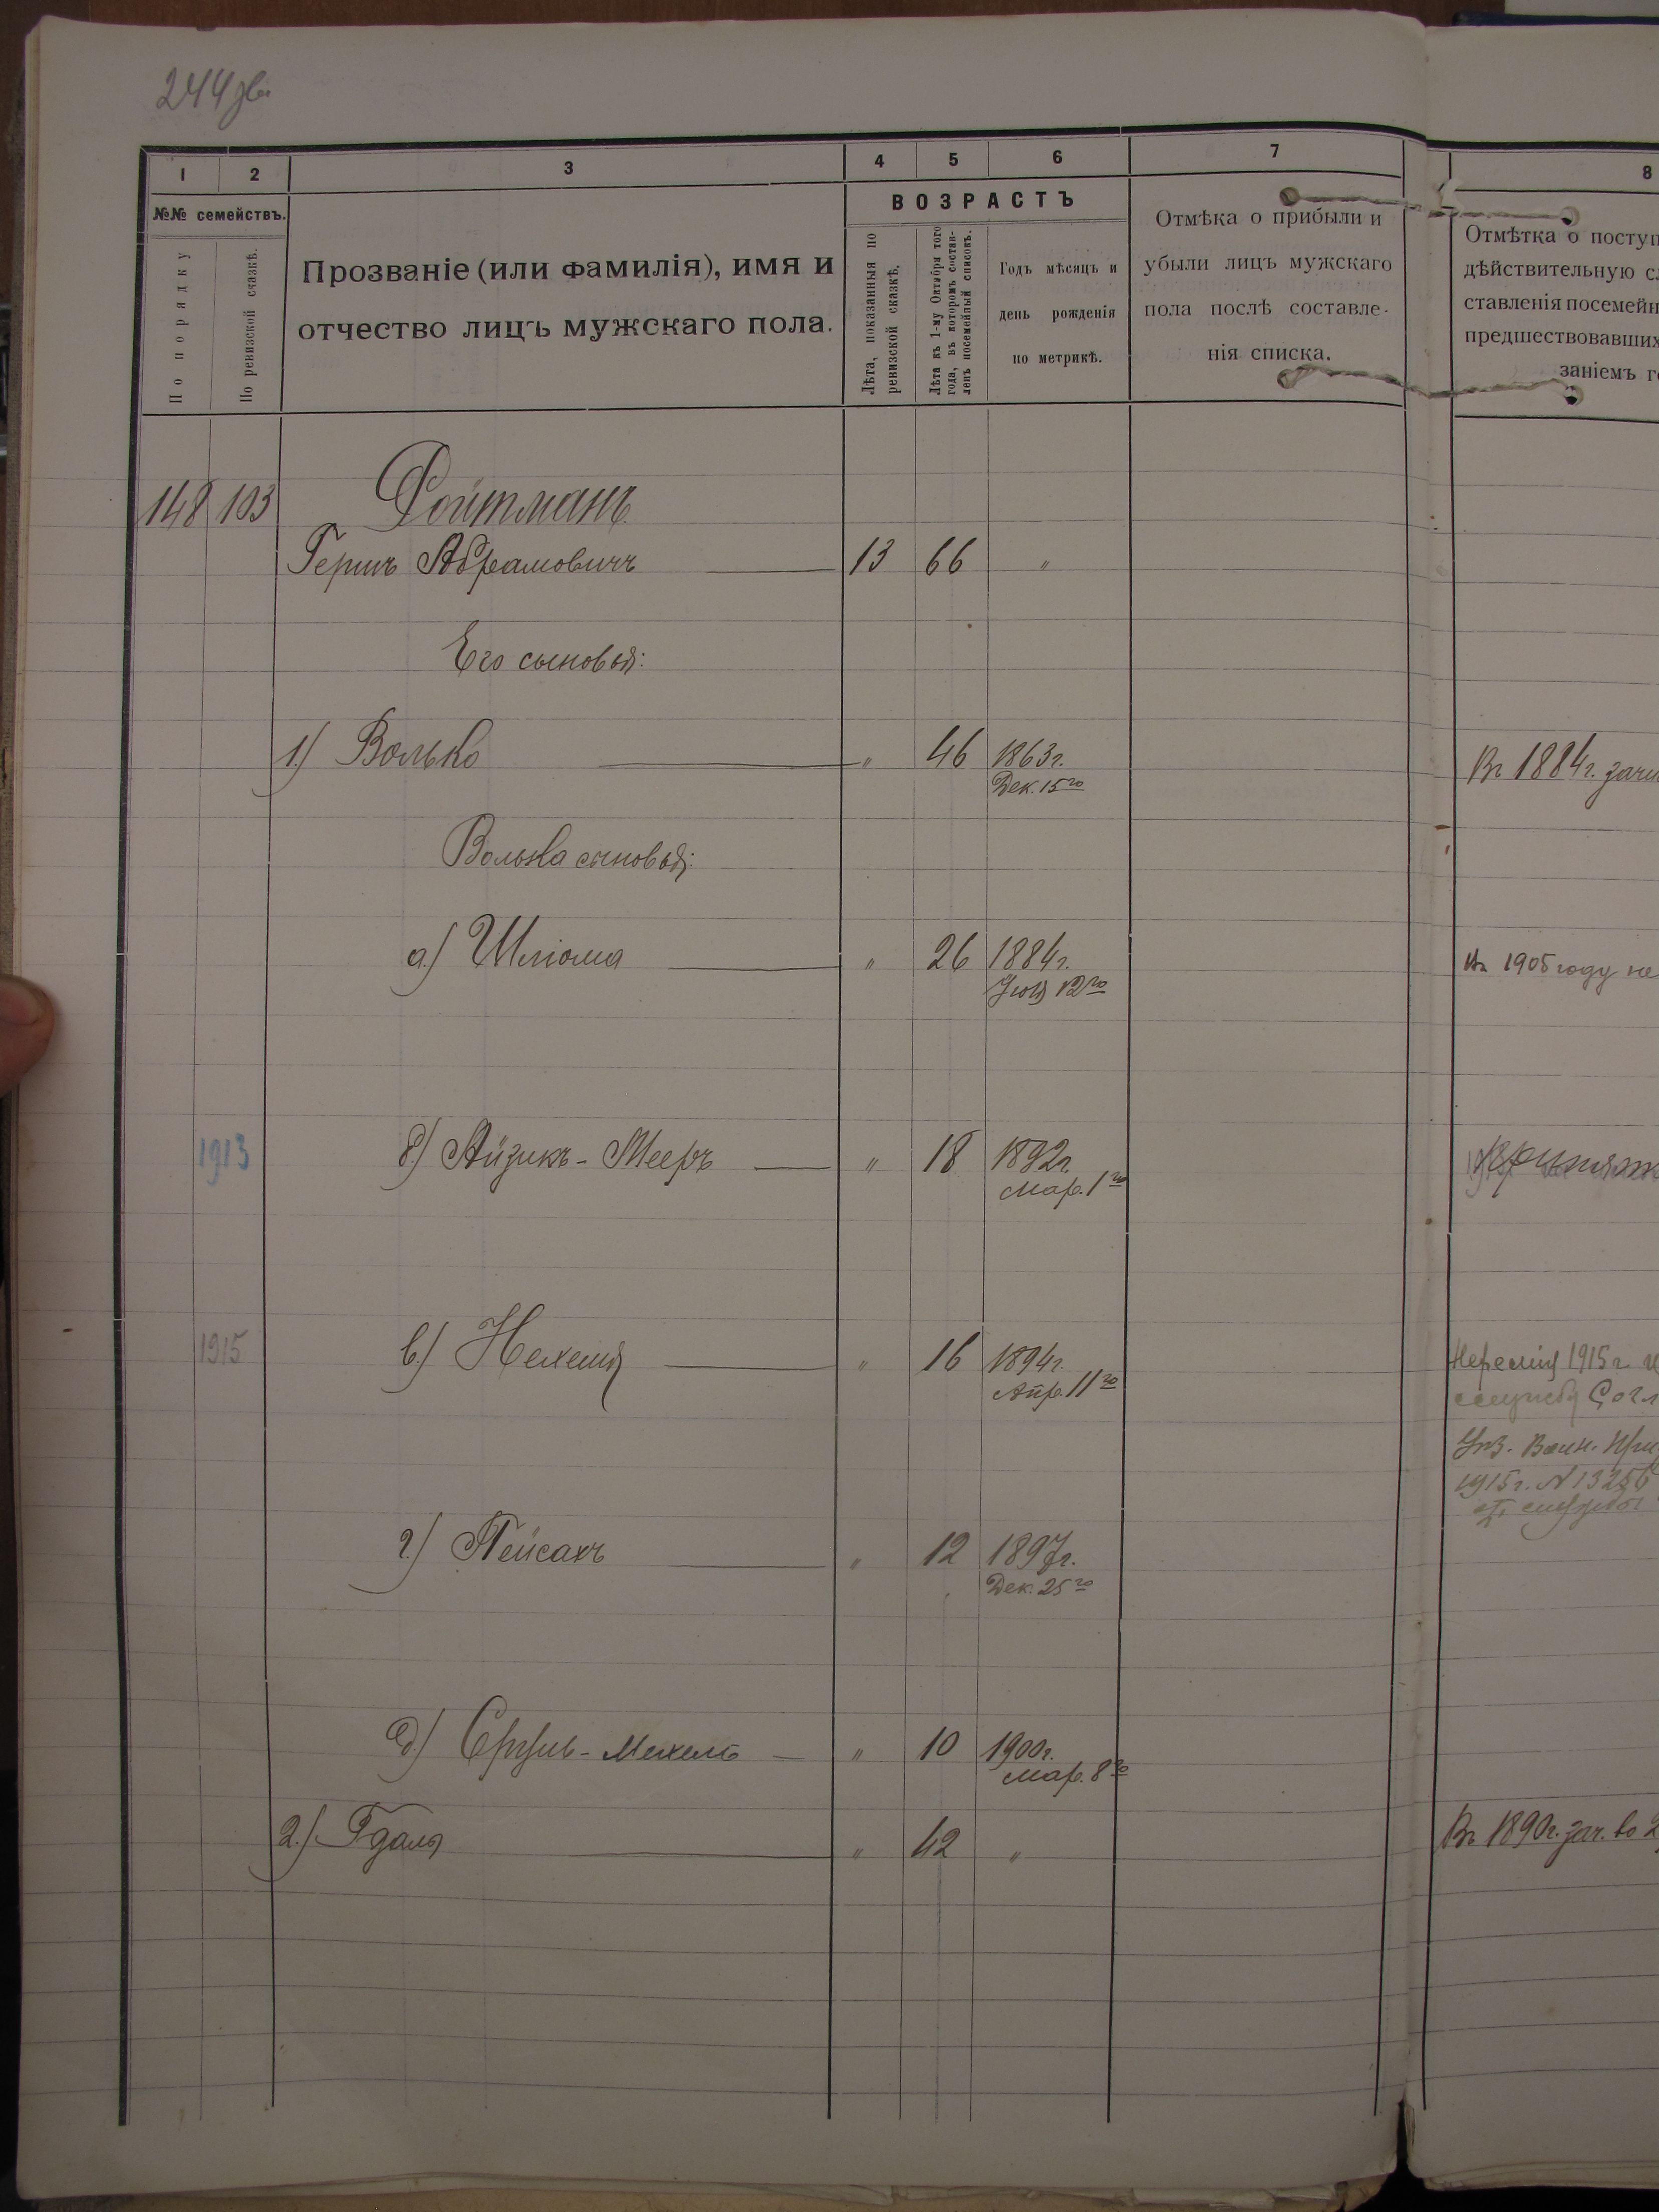 244 зв.
1 2 3 4 5 6 7 8
№№ семействъ.
По порядку
По ревизской сказкѣ.
Прозваніе (или фамилія), имя и
отчество лицъ мужскаго пола.
ВОЗРАСТЪ
Лѣта, показанныя по
ревизской сказкѣ.
Лѣта къ 1-му Октября того
года, въ которомъ состав-
ленъ посемейный списокъ.
Годъ мѣсяцъ и
день рожденія
по метрикѣ.
Отмѣка о прибыли и
убыли лицъ мужскаго
пола послѣ составле-
нія списка.
Отмѣтка о поступ
дѣйствительную сл
ставленія посемейн
предшествовавших
заніемъ г
148 103 Ройтманъ
Гершъ Абрамовичъ 13 66 "
Его сыновья:
1.) Волько " 46 1863г.
Дек. 15го
Въ 1884г. зачи
Волька сыновья:
а.) Шліома " 26 1884г.
Іюля 12го
Въ 1905 году не
1913 б.) Айзикъ-Мееръ " 18 1892г.
Мар. 1го
1915 в.) Нехемія " 16 1894г.
Апр. 11го
1915 г.
службу Согл
Уѣз. Воин. При
1915г. № 13256
службы
г.) Пейсахъ " 12 1897г.
Дек. 25го
д.) Сруль-Мехель " 10 1900г.
Мар. 8го
2.) Гдаля " 42 "
Въ 1890г. зач. во 2